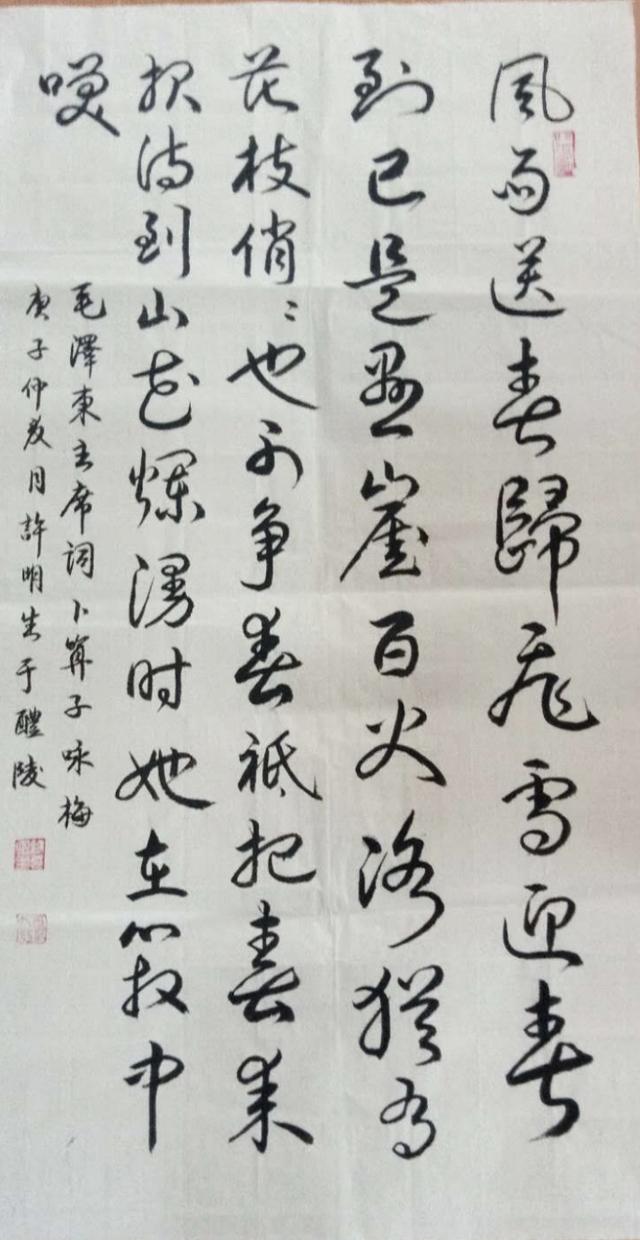 風雨送春歸飛雪迎春
到已是懸崖百丈冰猶有
花枝俏々也不争春祗把春来
报待到山花爛漫时她在叢中
咲
毛澤東主席詞卜算子咏梅
庚子仲夏月許明生于醴陵